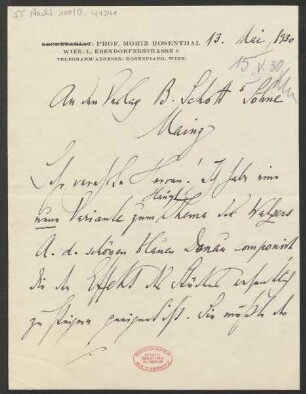 55 Nachl 100/B, 41341
SEKRETARIAT: PROF. MORIZ ROSENTHAL
WIEN: I., EBENDORFERSTRASSE 8
TELEGRAMM-ADRESSE: ROSENPIANO, WIEN.
13. Mai 1930
15/V. 30
An den Verlag B. Schott's Söhne
Mainz
Sehr verehrte Herren! Ich habe eine
neue Variante zum Haupt Thema des Walzers
A. d. schönen blauen Donau componirt
die den Effekt des Stückes
zu steigern geeignet ist. Sie müßte